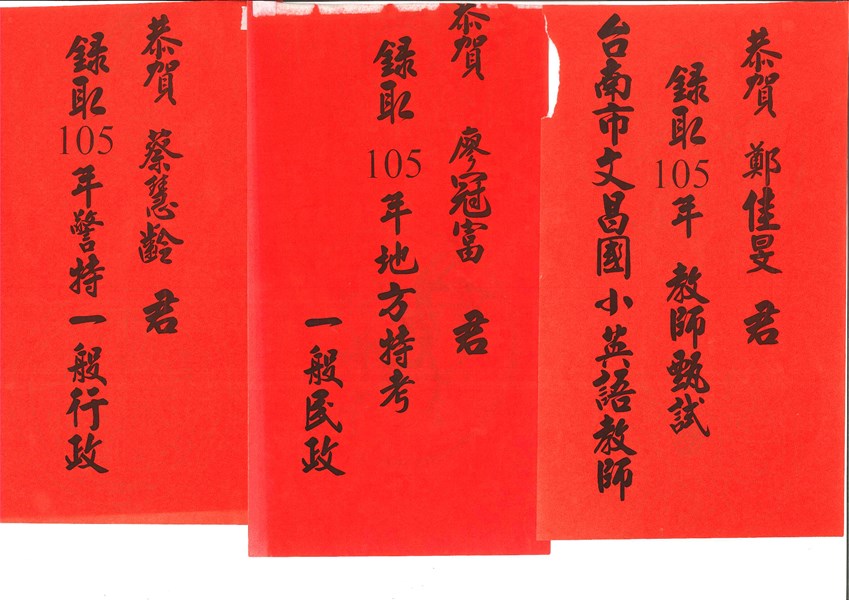 恭賀 鄭佳旻 君
錄取105年 教師甄試
台南市文昌國小英語教師
恭賀 廖冠富 君
錄取 105 年地方特考
一般民政
恭賀 蔡慧齡 君
錄取105年警特一般行政